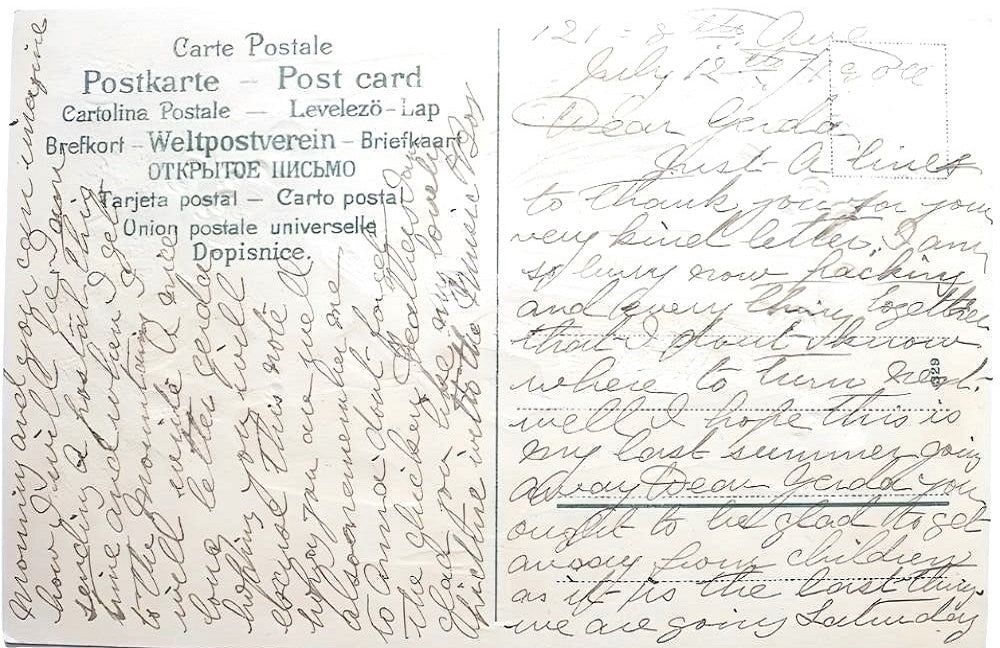 Carte Postale
Postkarte - Post card
Cartolina Postale - Levelező-Lap
Brefkort - Weltpostverein - Briefkaart
ОТКРЫТОЕ ПИСЬМО
Tarjeta postal - Carto postal
Union postale universelle
Dopisnice.
329
121 - 8th Ave
July 12th
Dear Gerda
Just a lines
to thank you for your
very kind letter. I am
so busy now packing
and every thing together
that I dont know
where to turn next.
well I hope this is
my last summer going
away Dear Gerda you
ought to be glad to get
away from children
as it is the last thing.
we are going Saturday
morning and you can imagine
how I will be gone
sending a postal this
time and when I get
to the mountains
will write a nice
long letter Gerda
hoping you will
excuse this note
hoping you are well
also remember me
to Anna dont forget
the chicken
Glad you like my lovely
picture with the music Boy